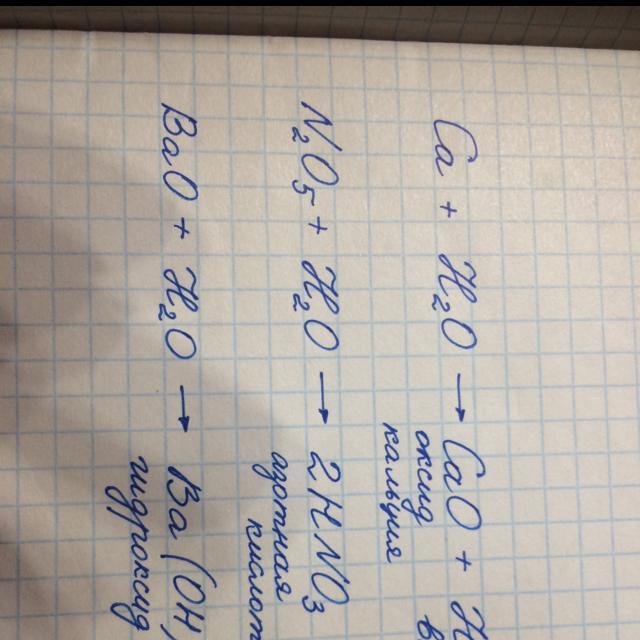 Ca + H₂O → CaO + H
оксид
кальция
N₂O₅ + H₂O → 2HNO₃
азотная
кислот
BaO + H₂O → Ba(OH)
гидроксид